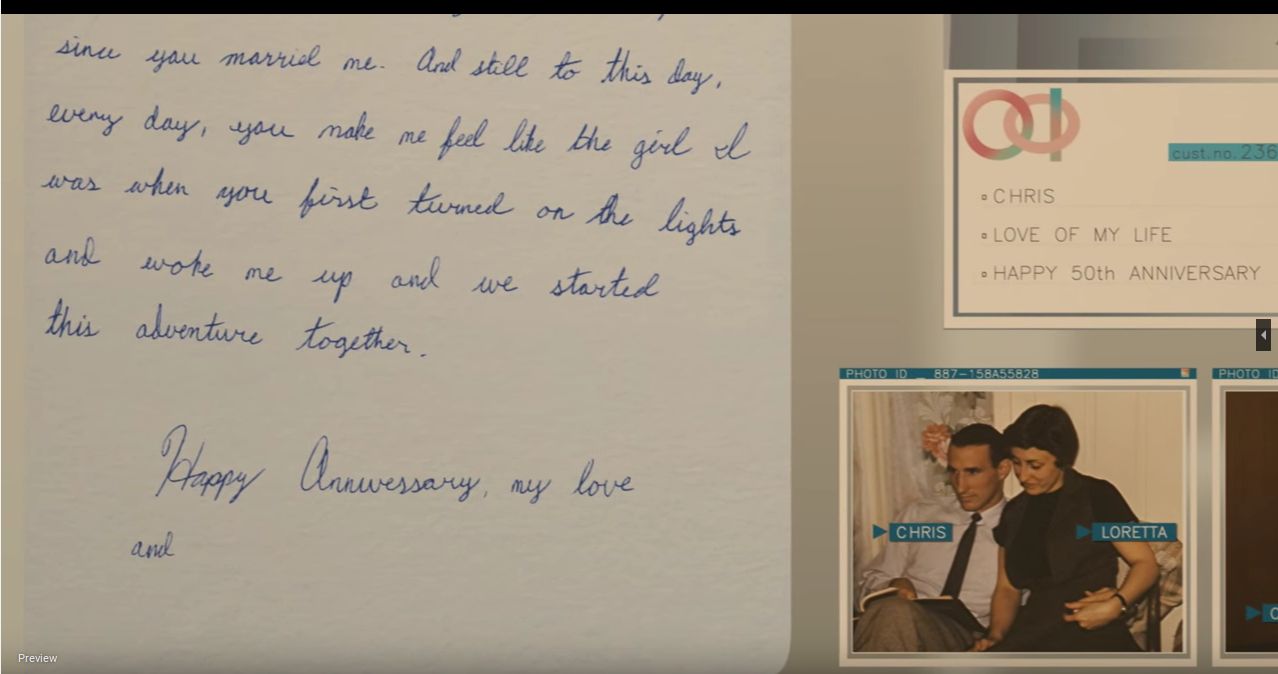 since you married me. And still to this day,
every day, you make me feel like the girl I
was when you first turned on the lights
and woke me up and we started
this adventure together.
Happy Anniversary, my love
and
cust.no.236
CHRIS
LOVE OF MY LIFE
HAPPY 50th ANNIVERSARY
PHOTO ID _ 887-158A55828
PHOTO ID
CHRIS
LORETTA
Preview